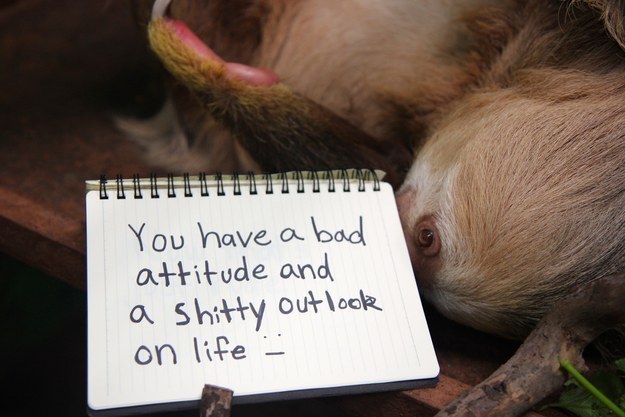 You have a bad
attitude and
a shitty outlook
on life :-